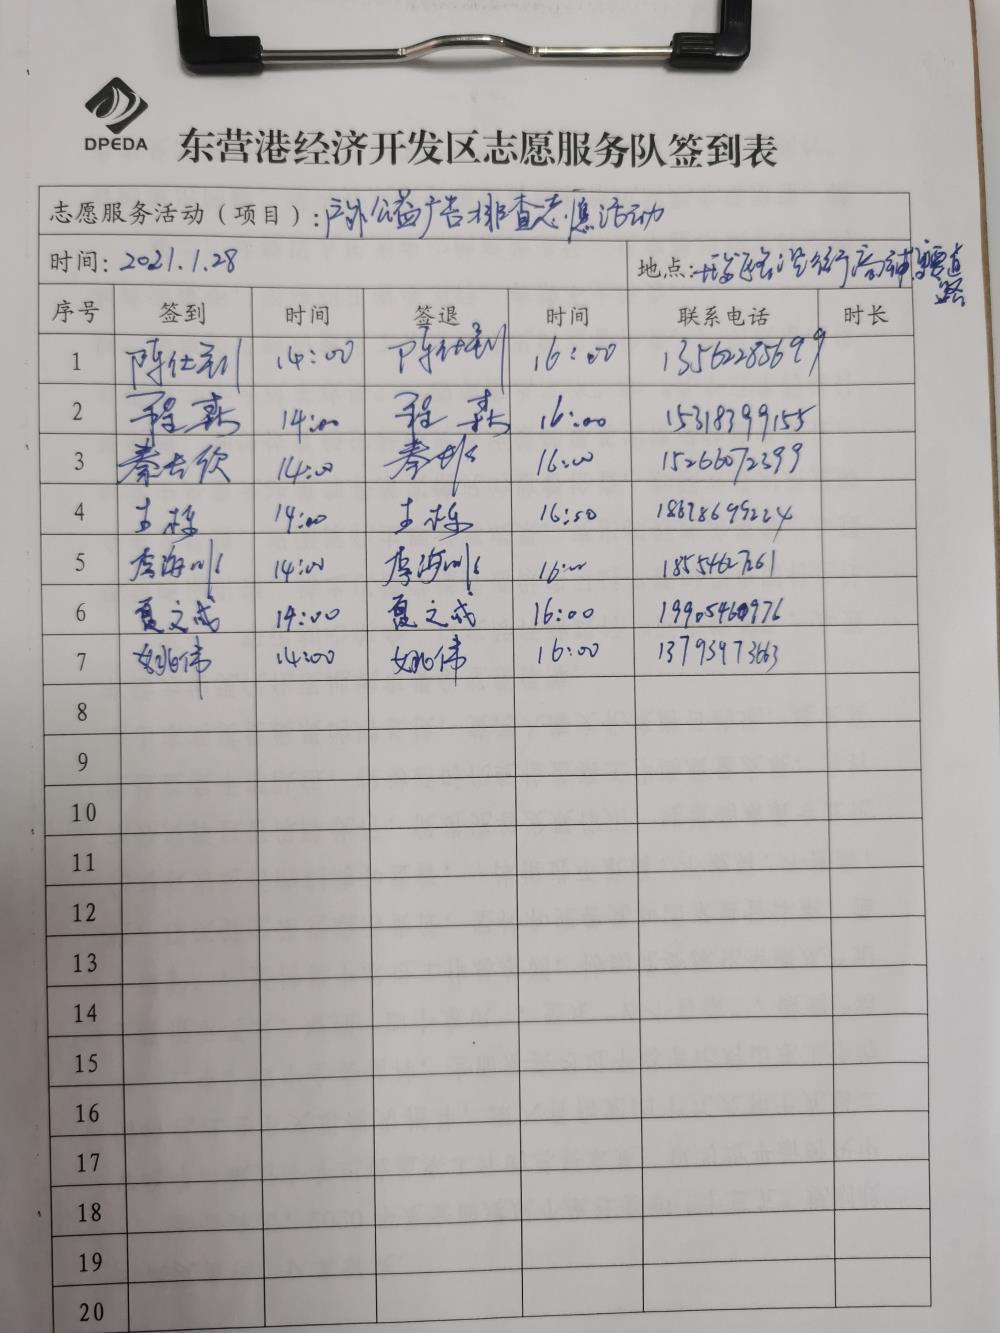 DPEDA
东营港经济开发区志愿服务队签到表
志愿服务活动（项目）：户外公益广告排查志愿活动
时间：2021.1.28 地点： 道路
序号 签到 时间 签退 时间 联系电话 时长
1 陈仕 14:00 陈仕 16:00 13562285699
2 程森 14:00 程森 16:00 15318399155
3 秦长欣 14:00 秦 16:00 15266072399
4 王栋 14:00 王栋 16:50
5 李海 14:00 李海 16:00 18554627261
6 夏文成 14:00 夏文成 16:00
7 姚伟 14:00 姚伟 16:00 13793973663
8
9
10
11
12
13
14
15
16
17
18
19
20